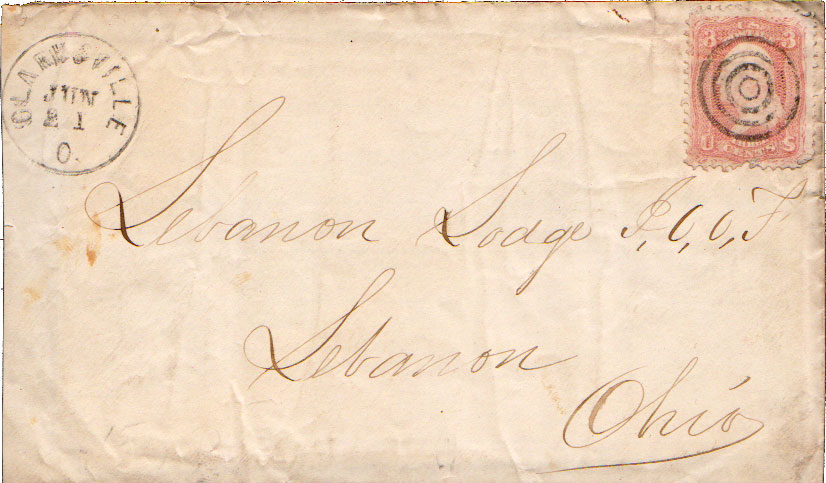 CLARKSVILLE
JUN
21
O.
3 3
U S
CENTS
Lebanon Lodge I,O,O,F
Lebanon
Ohio